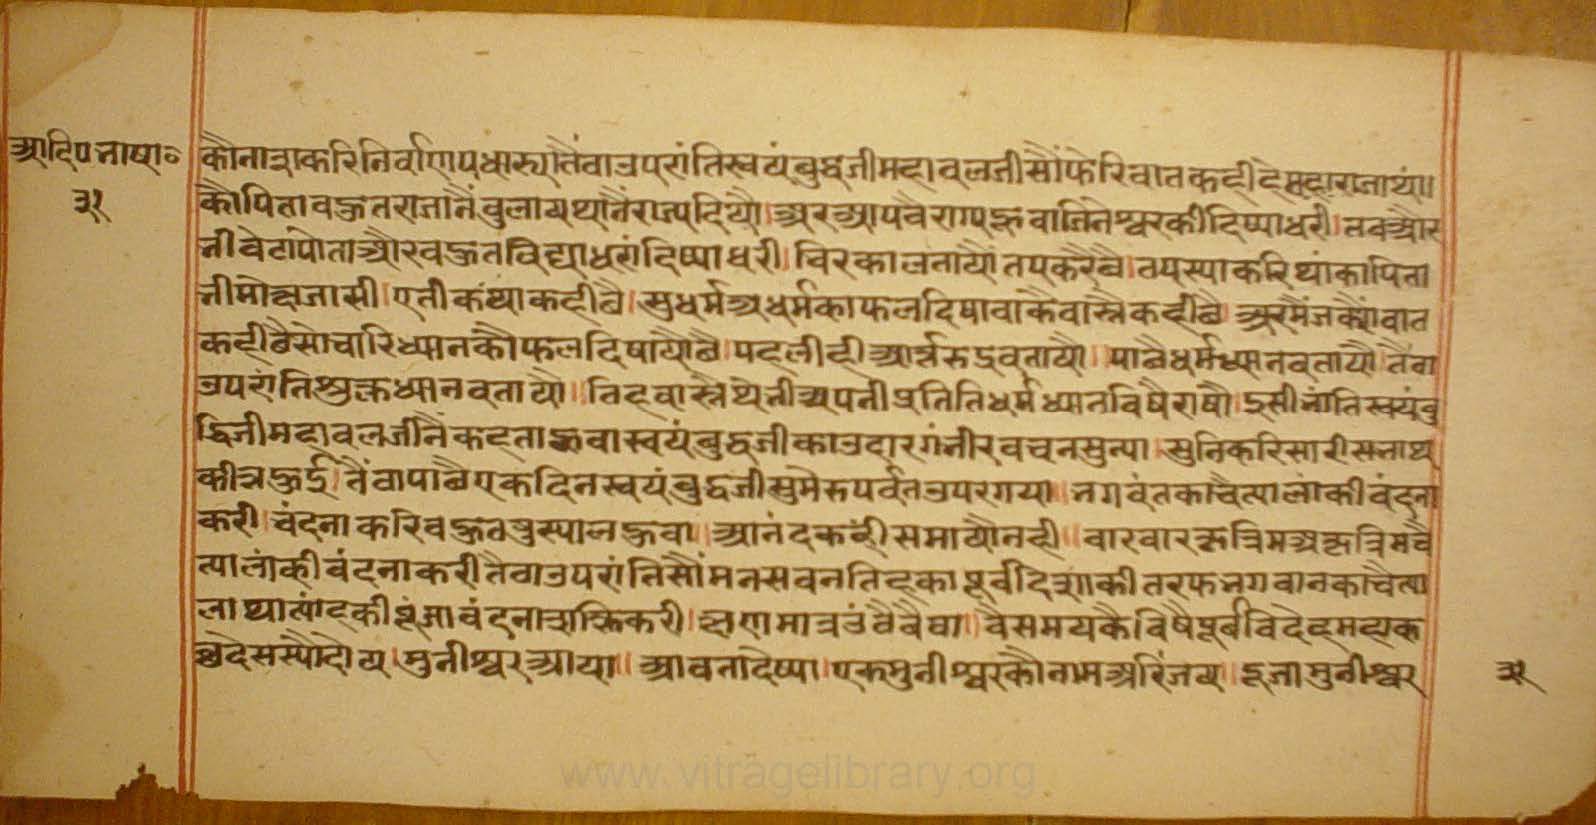 आदिपु भाषा०
३१
कौ नाश करि निर्वाण पधास्या तैंवा उपरांति स्वयंबुद्धजी महाबलजी सौं फेरि बात कही है महाराजा थां॥
कौ पिता बहुत राजानैं बुलाय थांनैं राज्य दियौ। अर आप वैराग्य हुवा जिनेश्वर की दिष्या धरी। तब और
नी बेटां पोता और बहुत विद्याधरां दिष्या धरी। चिरकाल तायौं तप करै छै। तपस्या करि थांका पिता
नी मोक्ष जासी। एती कथा कही छै। सुधर्म अधर्म का फल दिषावा कै वास्तै कही छै। अर मैं ज क्यों बात
कही छै सो चारि ध्यान कौ फल दिषायौ छै। पहली ही आर्त्त रुद्र बतायौ। पाछै धर्मध्यान बतायौ। तैंवा
उपरांति शुक्लध्यान बतायौ॥ तिह वास्तै थे नी अपनी प्रतिति धर्मध्यान विषै राषौ। इसी भांति स्वयंबु
द्धिजी महाबलजीनैं कहता हुवा स्वयंबुद्धजी का उदार गंभीर वचन सुन्या। सुनि करि सारी सभा थ
कीत हुई। तैंवा पाछै एक दिन स्वयंबुद्धजी सुमेरु पर्वत उपर गया॥ भगवंत का चैत्यालां की वंदना
करी। वंदना करि बहुत षुस्याल हुवा॥ आनंद कहीं समायौ नही॥ बार बार कृत्रिम अकृत्रिम चै
त्यालां की वंदना करी तैंवा उपरांति सौंमनस वन तिह का पूर्व दिशां की तरफ भगवान का चैत्या
ला था त्यांह की पूजा वंदना भक्ति करी। क्षणमात्र उंठै बैठा। वै समय कै विषै पूर्व विदेह महाक
छ देस स्यौं दोय मुनीश्वर आया॥ आवता देष्या। एक मुनीश्वर कौ नाम अरिंजय॥ दूजा मुनीश्वर
३१
www.vitragelibrary.org